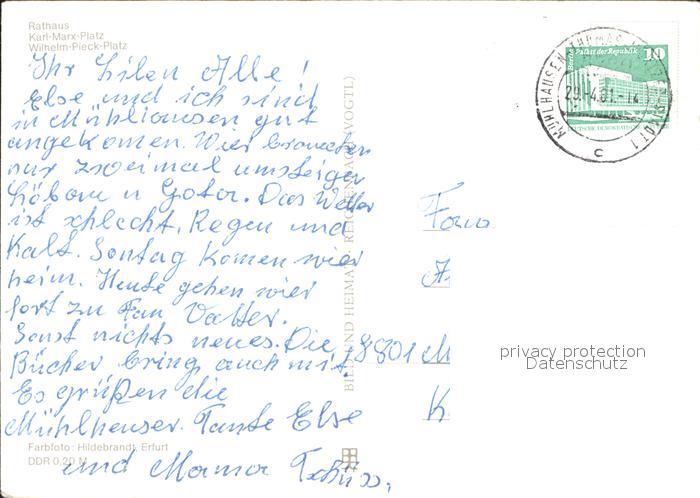 Rathaus
Karl-Marx-Platz
Wilhelm-Pieck-Platz
Ihr Liben Alle!
Else und ich sind
in Mühlhausen gut
angekomen. Wier brauchten
nur zweimal umsteigen
Löbau u Gotar. Das Wetter
ist schlecht, Regen und
Kalt. Sontag komen wier
heim. Heute gehen wier
fort zu Frau Vatter.
Sonst nichts neues. Die
Bücher bring auch mit.
Es grüßen die
Mühlheuser. Tante Else
und Mama Tschüss,
Farbfoto: Hildebrandt, Erfurt
DDR 0,20 M
BILD UND HEIMAT REICHENBACH (VOGTL)
Berlin Palast der Republik 10
DEUTSCHE DEMOKRATISCHE
MÜHLHAUSEN THOMAS-MÜNTZER-STADT 1
29.-4.81.-14
c
Frau
8801 M
K
privacy protection
Datenschutz